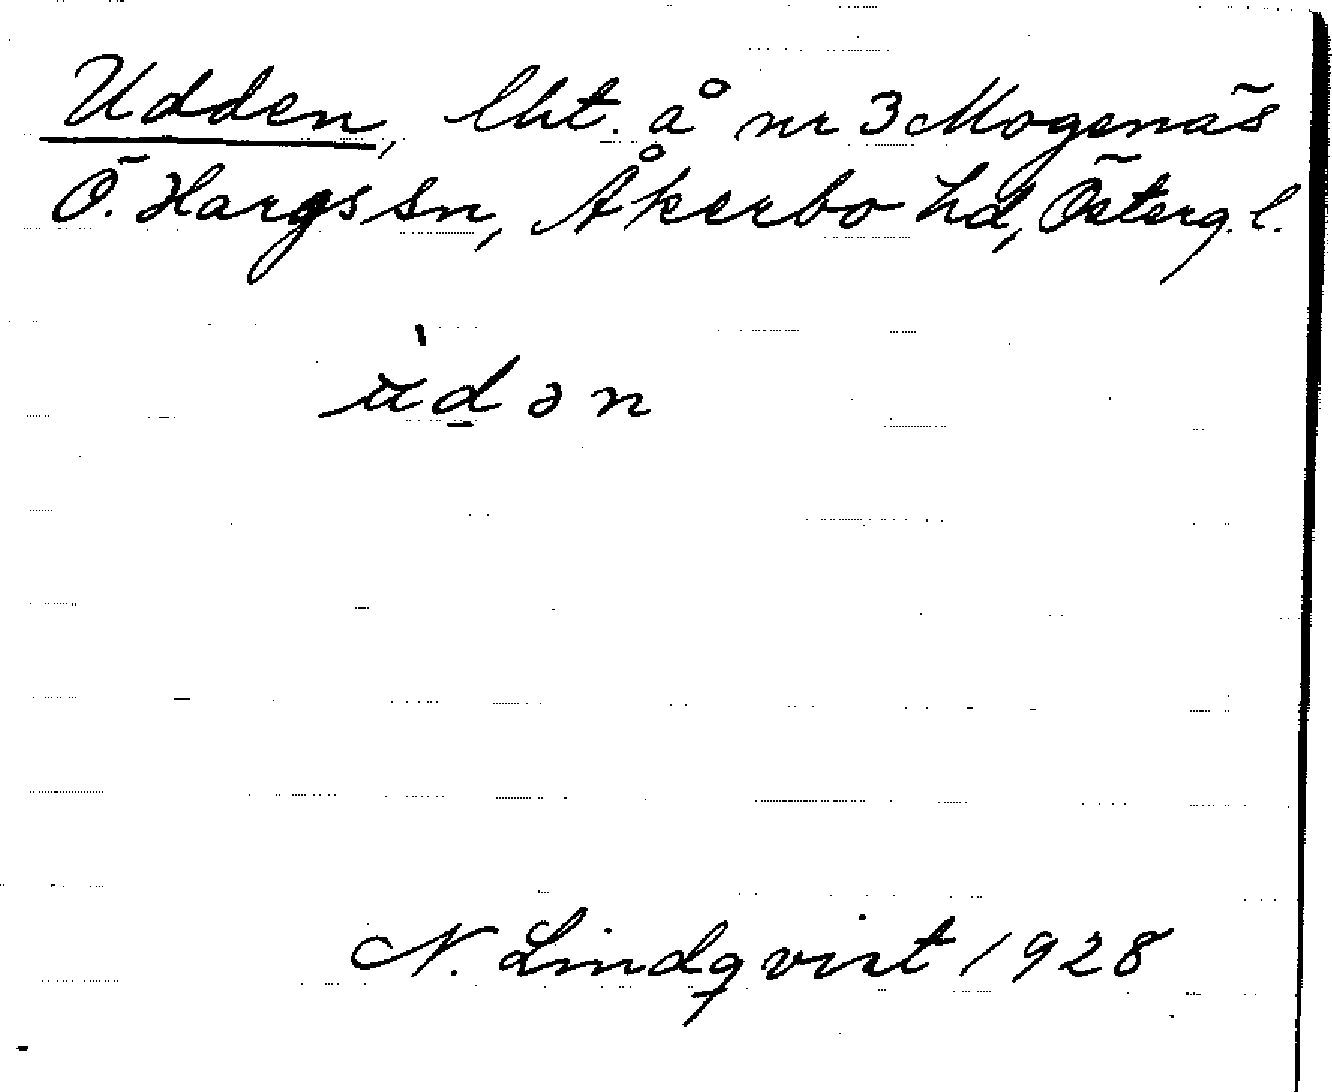 Udden, lht. å nr 3 Mogenäs
Ö. Hargs sn, Åkerbo hd, Österg. l.
N. Lindqvist 1928